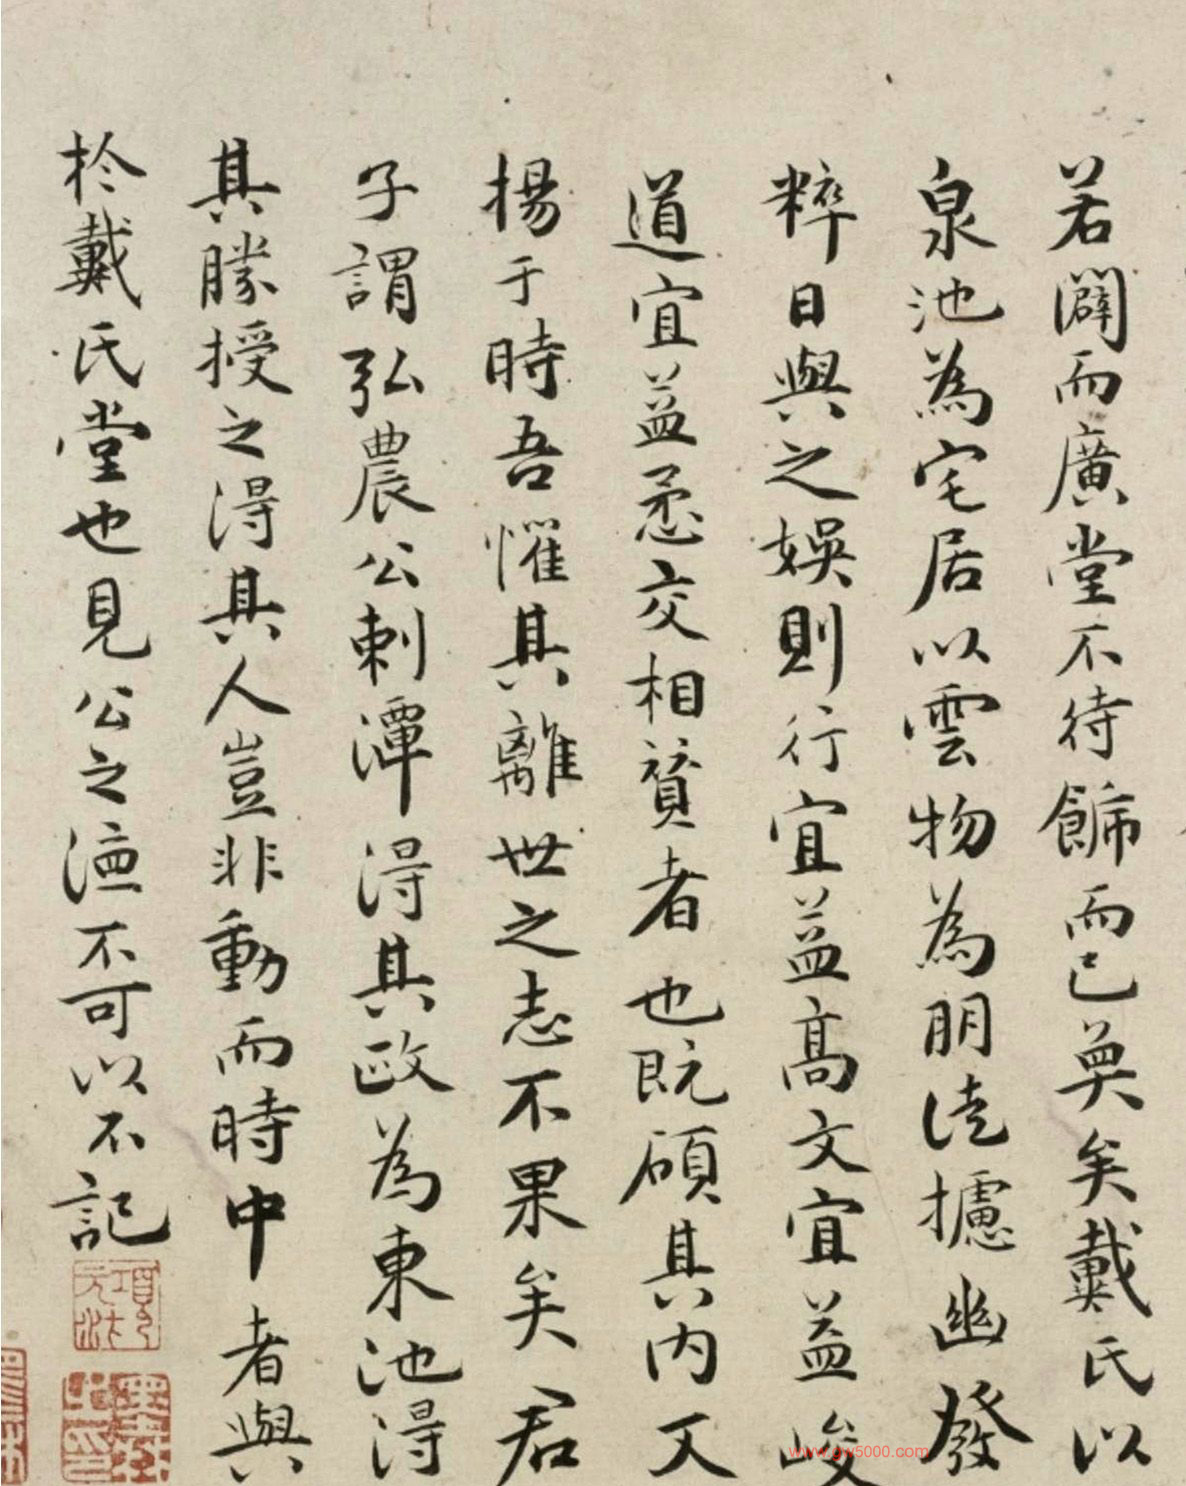 若闢而廣堂不待飾而已奐矣戴氏以
泉池為宅居以雲物為朋徒攄幽發
粹日與之娛則行宜益高文宜益峻
道宜益懋交相贊者也既碩其內又
揚于時吾懼其離世之志不果矣君
子謂弘農公刺潭得其政為東池得
其勝授之得其人豈非動而時中者與
於戴氏堂也見公之德不可以不記